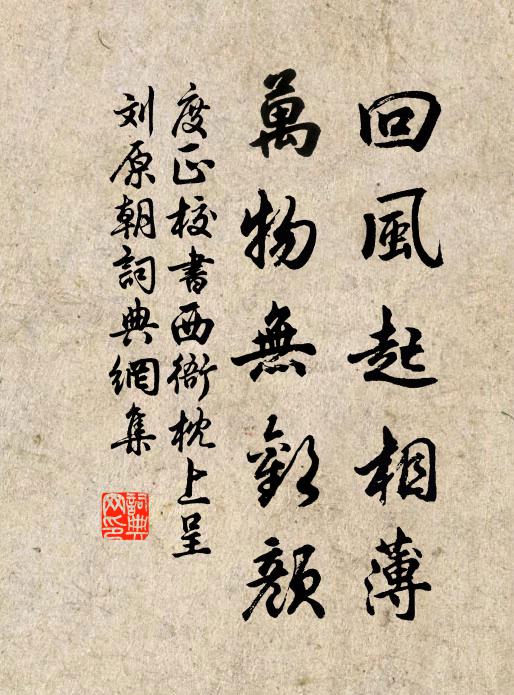 回風起相薄
萬物無歡顏
度正校書西衙枕上呈
刘原朝詞典網集
詞典
网印